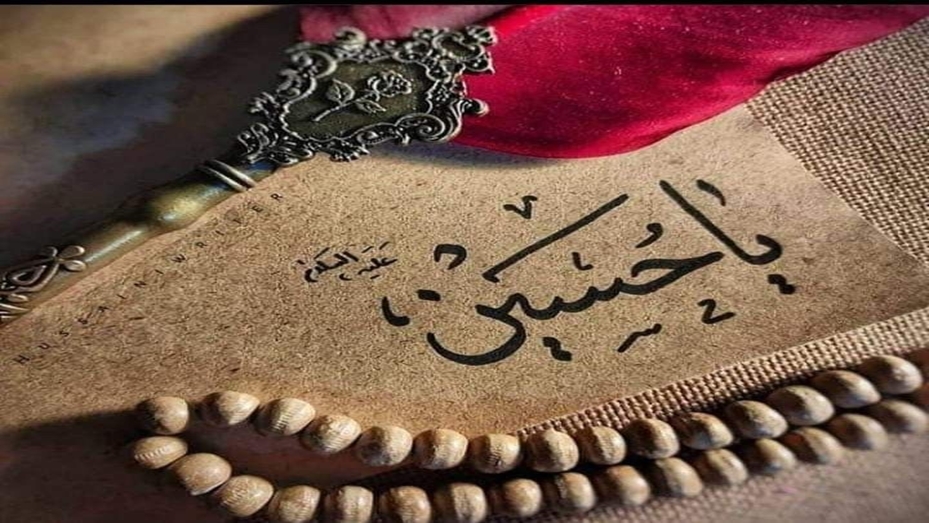 يا حُسَين
عَلَيهِ السَّلامْ
HUSSAINIWRITER